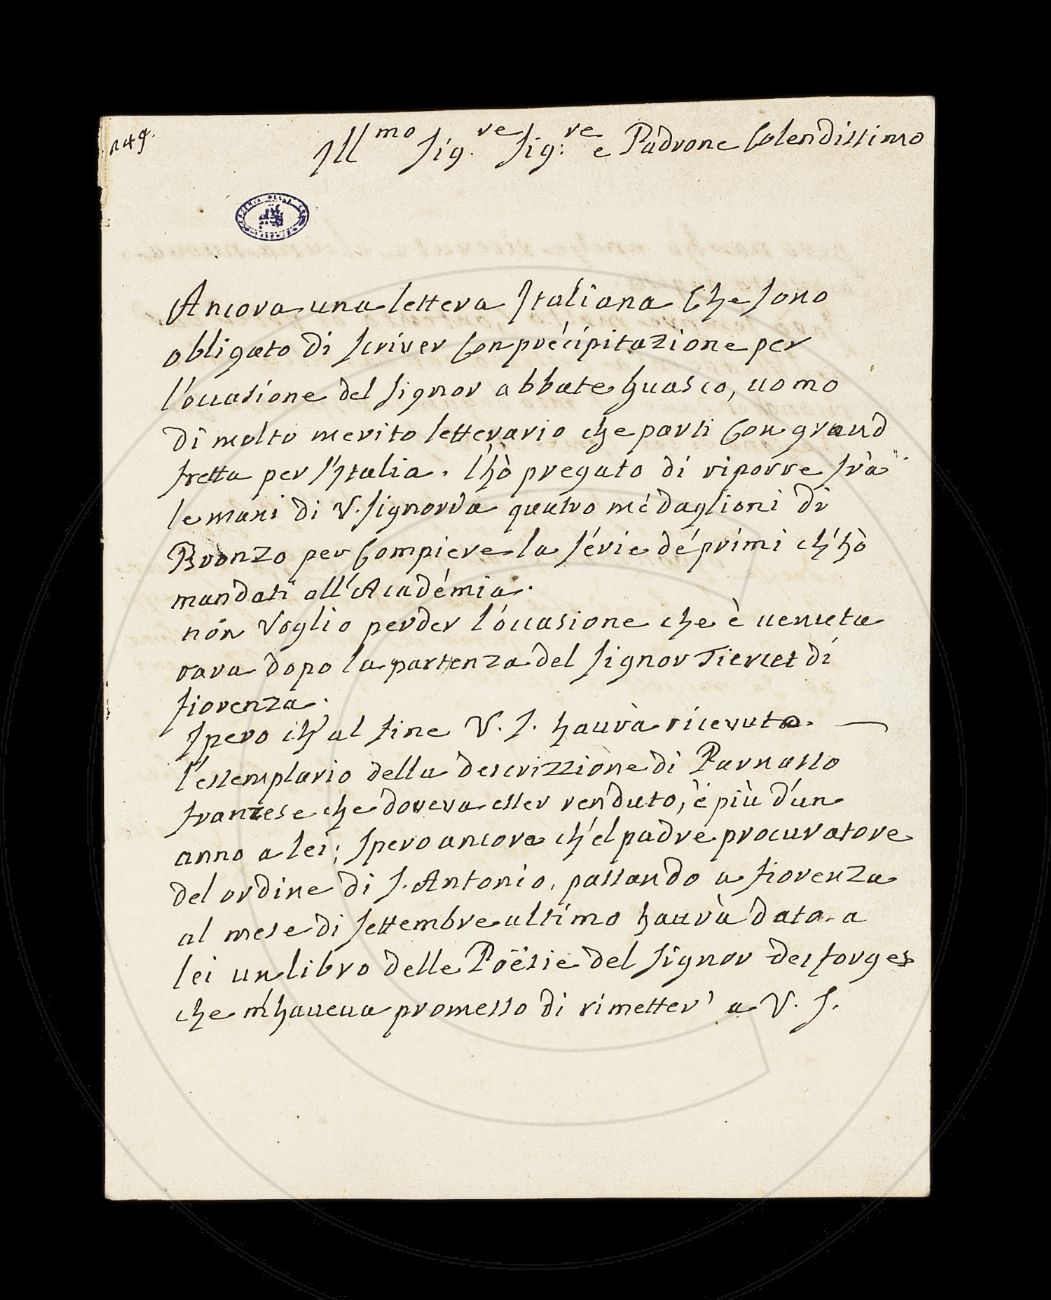 149.
Ill.mo Sig.re Sig:re e Padrone Colendissimo
Ancora una lettera Italiana Che sono
obligato di scriver Con précipitazione per
l'occasione del signor abbate guasco, uomo
di molto merito letterario che parti Con grand
fretta per l'Italia. l'hò pregato di riporre frà
le mani di V. signoria quatro médaglioni di
Bronzo per Compiere la série dé prími ch'hò
mandati all'Académia.
non Voglio perder l'occasione che è venuta
rara dopo la partenza del signor Tiercet di
fiorenza.
spero ch'al fine V. S. haurà ricevuto.
l'essemplario della descrizzione di Parnasso
franzese che doveva esser renduto, è più d'un
anno a lei; spero ancora ch'el padre procuratore
del ordine di S. Antonio, passando a fiorenza
al mese di settembre ultimo haurà dato a
lei un libro delle Poësie del signor desforges
che m'haueua promesso di rimetter' a V. S.